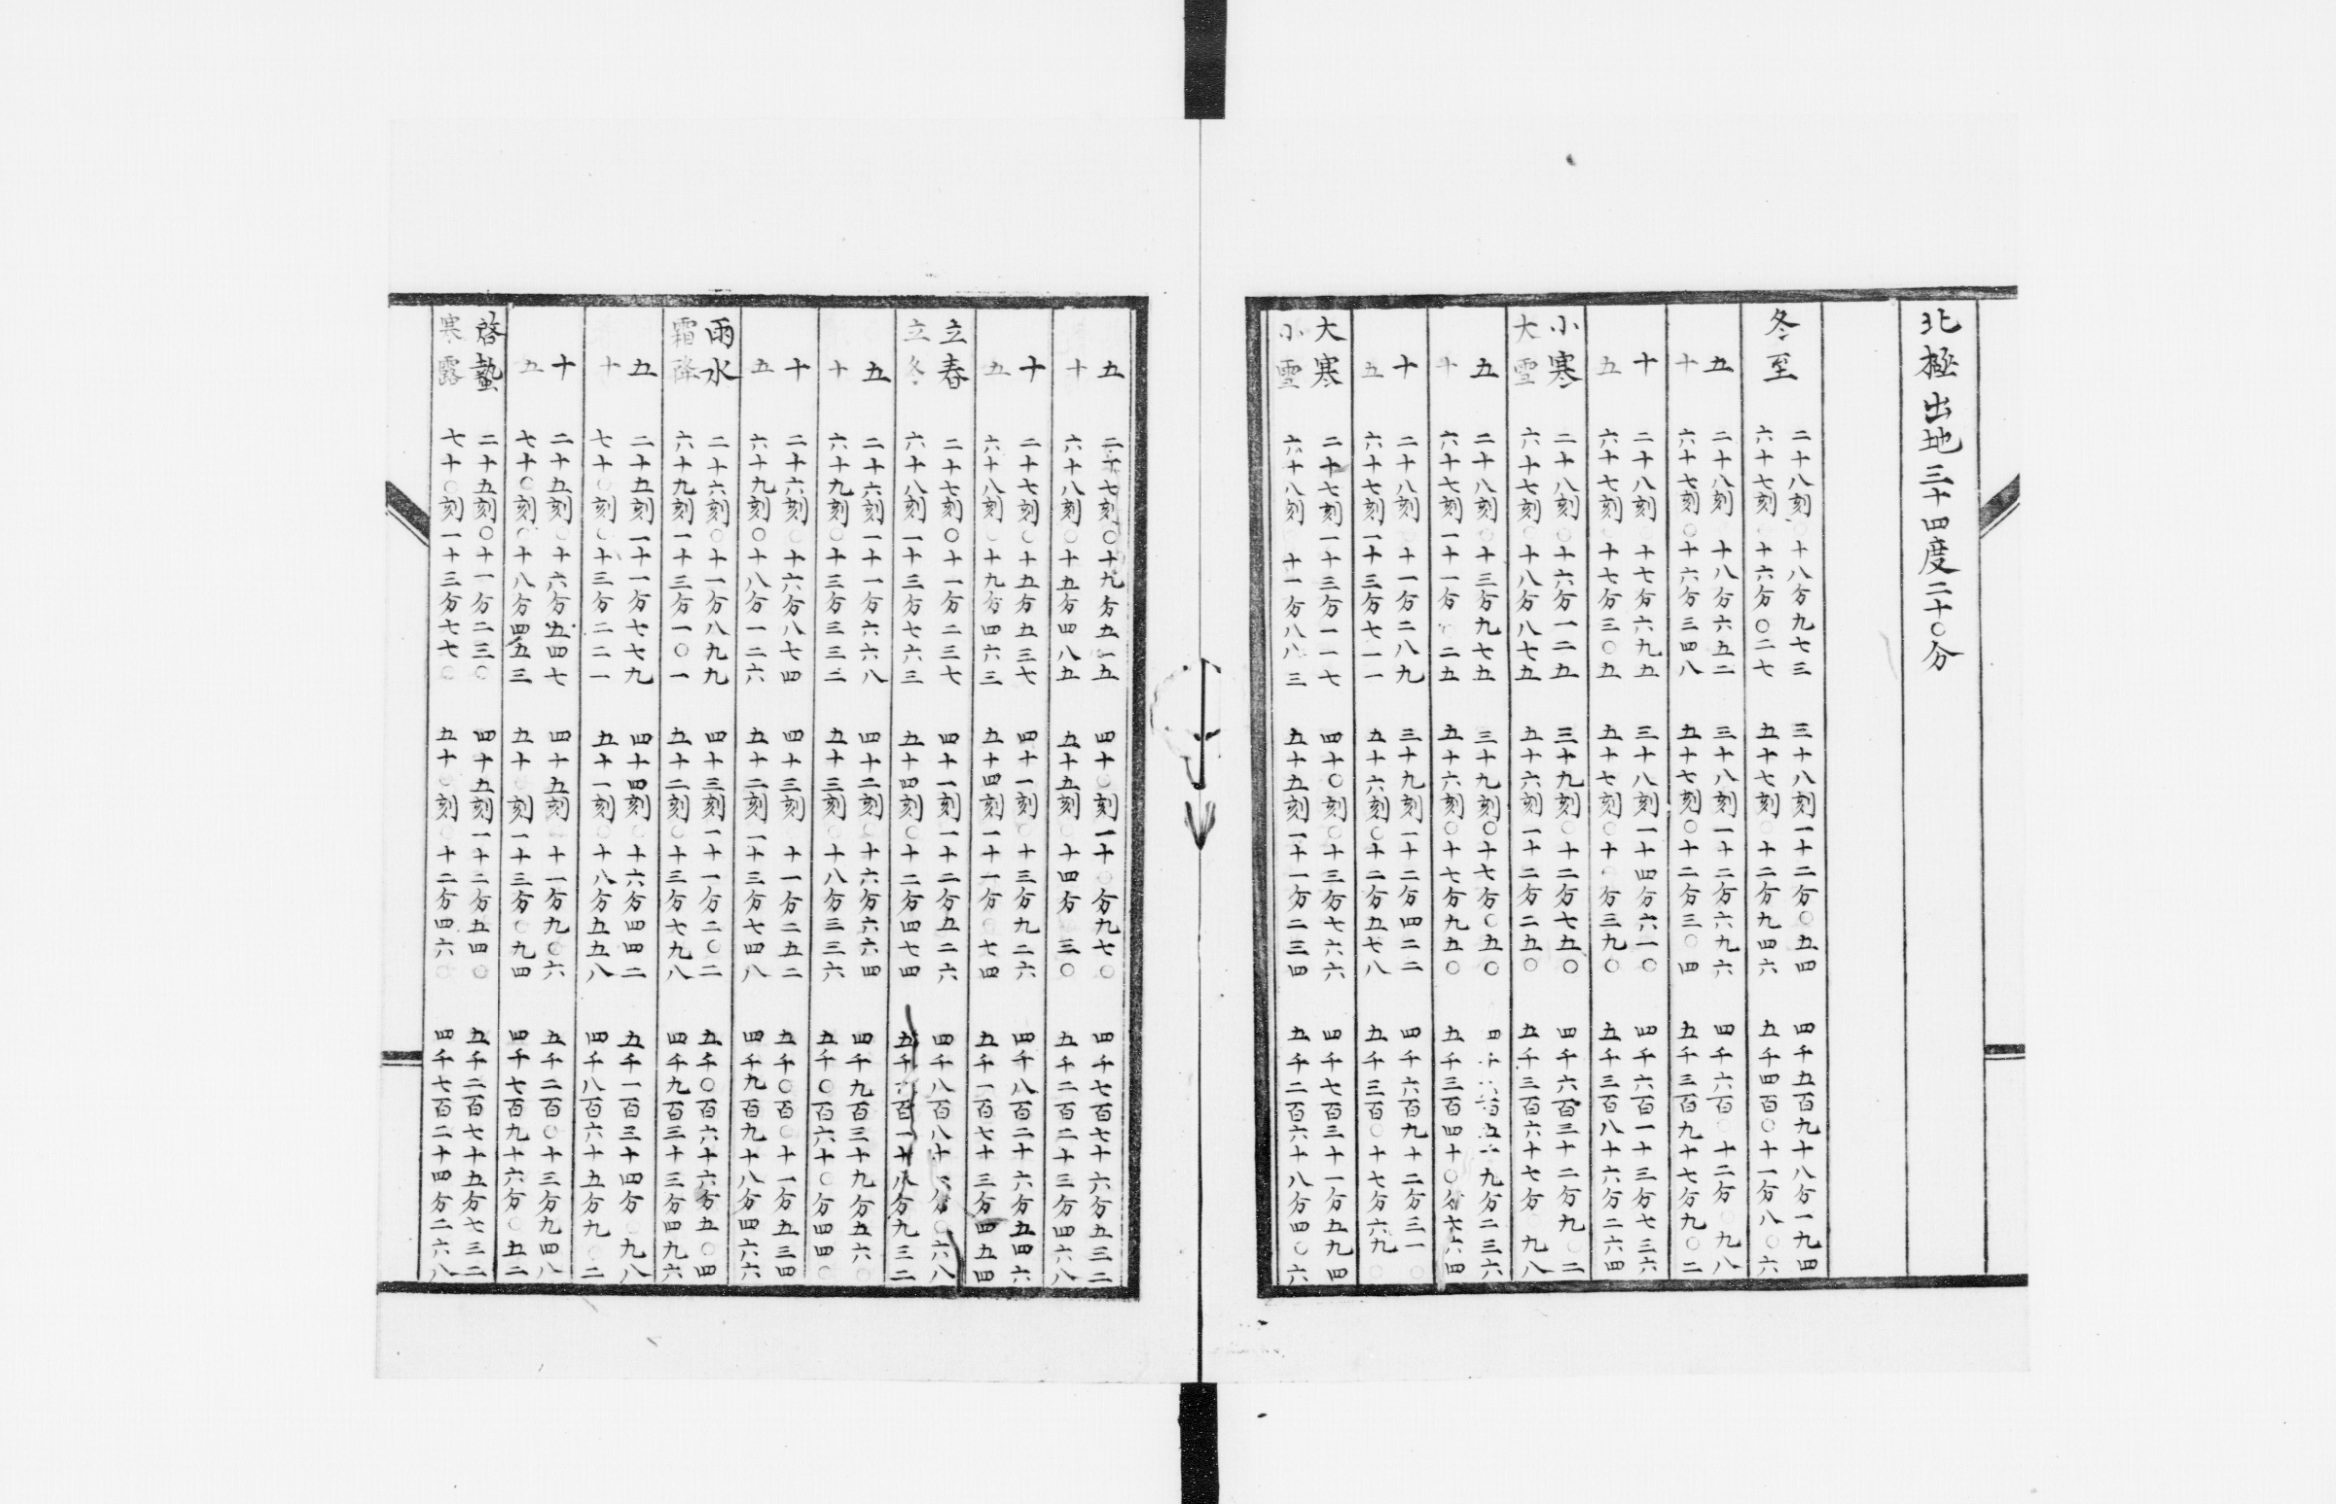 北極出地三十四度二十〇分
冬至
二十八刻〇十八分九七三 三十八刻一十二分〇五四 四千五百九十八分一九四
六十七刻〇十六分〇二七 五十七刻〇十二分九四六 五千四百〇十一分八〇六
五 二十八刻 十八分六五二 三十八刻一十二分六九六 四千六百〇十二分〇九八
十 六十七刻〇十六分三四八 五十七刻〇十二分三〇四 五千三百九十七分九〇二
十 二十八刻〇十七分六九五 三十八刻一十四分六一〇 四千六百一十三分七三六
五 六十七刻〇十七分三〇五 五十七刻〇十〇分三九〇 五千三百八十六分二六四
小寒 二十八刻〇十六分一二五 三十九刻〇十二分七五〇 四千六百三十二分九〇二
大雪 六十七刻〇十八分八七五 五十六刻一十二分二五〇 五千三百六十七分〇九八
五 二十八刻〇十三分九七五 三十九刻〇十七分〇五〇 九分二三六
十 六十七刻一十一分〇二五 五十六刻〇十七分九五〇 五千三百四十〇分七六四
十 二十八刻〇十一分二八九 三十九刻一十二分四二二 四千六百九十二分三一〇
五 六十七刻一十三分七一一 五十六刻〇十二分五七八 五千三百〇十七分六九〇
大寒 二十七刻一十三分一一七 四十〇刻〇十三分七六六 四千七百三十一分五九四
小雪 六十八刻〇十一分八八三 五十五刻一十一分二三四 五千二百六十八分四〇六
五 二十七刻〇十九分五一五 四十〇刻一十〇分九七〇 四千七百七十六分五三二
十 六十八刻〇十五分四八五 五十五刻〇十四分〇三〇 五千二百二十三分四六八
十 二十七刻〇十五分五三七 四十一刻〇十三分九二六 四千八百二十六分五四六
五 六十八刻〇十九分四六三 五十四刻一十一分〇七四 五千一百七十三分四五四
立春 二十七刻〇十一分二三七 四十一刻一十二分五二六 四千八百八十 分〇六八
立冬 六十八刻一十三分七六三 五十四刻〇十二分四七四 五千 百一十八分九三二
五 二十六刻一十一分六六八 四十二刻〇十六分六六四 四千九百三十九分五六〇
十 六十九刻〇十三分三三二 五十三刻〇十八分三三六 五千〇百六十〇分四四〇
十 二十六刻〇十六分八七四 四十三刻〇十一分二五二 五千〇百〇十一分五三四
五 六十九刻〇十八分一二六 五十二刻一十三分七四八 四千九百九十八分四六六
雨水 二十六刻〇十一分八九九 四十三刻一十一分二〇二 五千〇百六十六分五〇四
霜降 六十九刻一十三分一〇一 五十二刻〇十三分七九八 四千九百三十三分四九六
五 二十五刻一十一分七七九 四十四刻〇十六分四四二 五千一百三十四分〇九八
十 七十〇刻〇十三分二二一 五十一刻〇十八分五五八 四千八百六十五分九〇二
十 二十五刻〇十六分五四七 四十五刻〇十一分九〇六 五千二百〇十三分九四八
五 七十〇刻〇十八分四五三 五十〇刻一十三分〇九四 四千七百九十六分〇五二
啓蟄 二十五刻〇十一分二三〇 四十五刻一十二分五四〇 五千二百七十五分七三二
寒露 七十〇刻一十三分七七〇 五十〇刻〇十二分四六〇 四千七百二十四分二六八